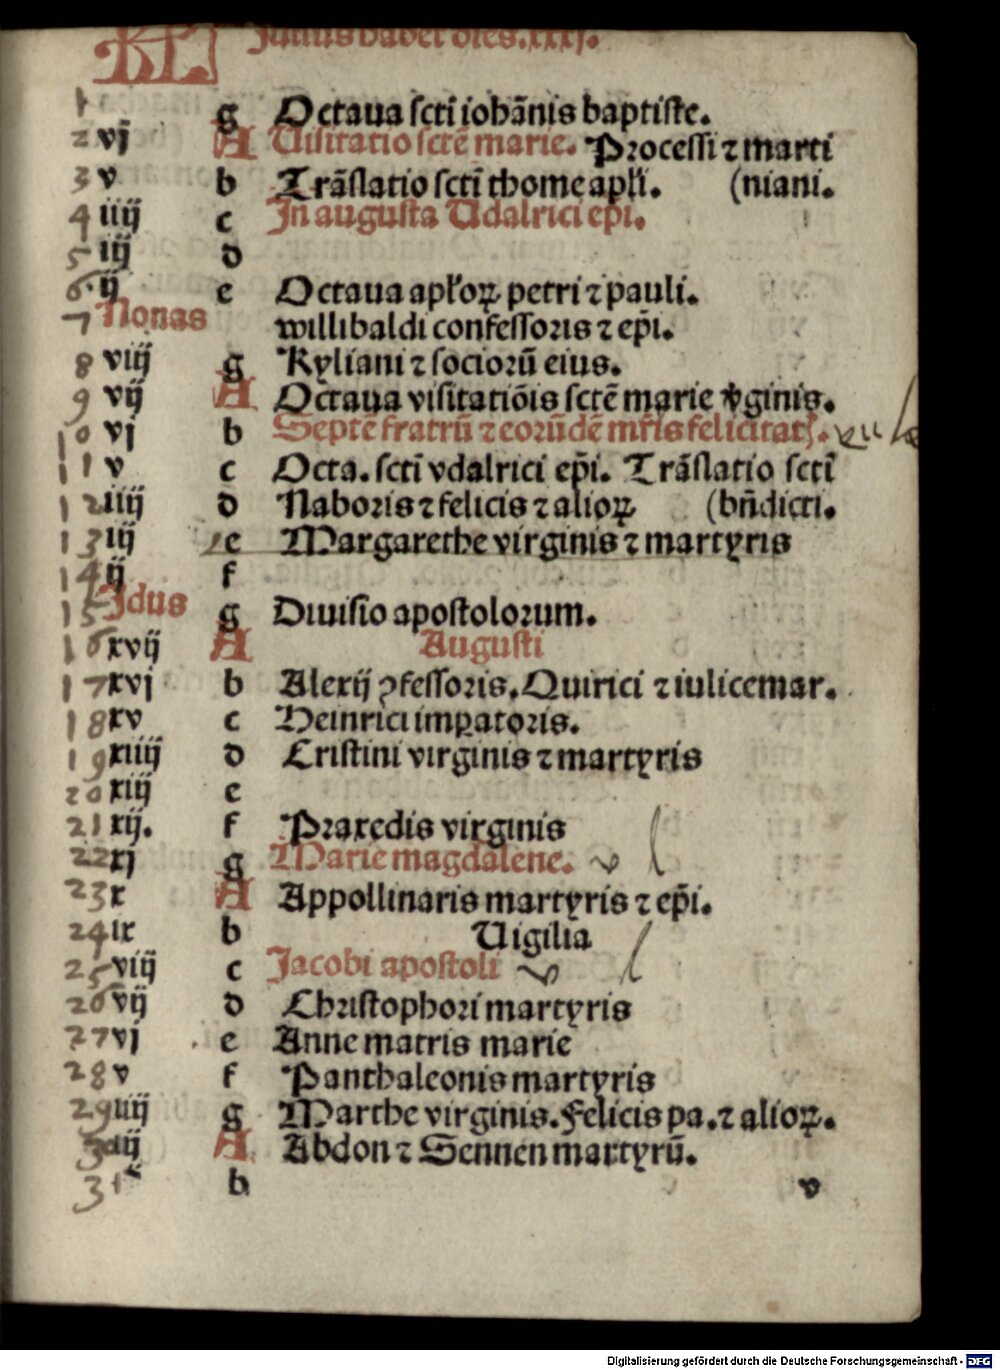 KL Julius habet dies.xxxj.
1 g Octaua sctī iohānis baptiste.
2 vj A Uisitatio sctē marie. Processi ⁊ marti
3 v b Trāslatio sctī thome apłi. (niani.
4 iiij c In augusta Udalrici ep̄i.
5 iij d
6 ij e Octaua apłoꝝ petri ⁊ pauli.
7 Nonas willibaldi confessoris ⁊ ep̄i.
8 viij g Kyliani ⁊ sociorū eius.
9 vij A Octaua visitatiōis sctē marie v̓ginis.
10 vj b Septē fratrū ⁊ eorūdē mr̄is felicitatꝭ.
11 v c Octa. sctī vdalrici ep̄i. Trāslatio sctī
12 iiij d Naboris ⁊ felicis ⁊ alioꝝ (bn̄dicti.
13 iij e Margarethe virginis ⁊ martyris
14 ij f
15 Idus g Diuisio apostolorum.
16 xvij A Augusti
17 xvj b Alexij ꝯfessoris. Quirici ⁊ iulice mar.
18 xv c Heinrici imꝑatoris.
19 xiiij d Cristini virginis ⁊ martyris
20 xiij e
21 xij. f Praxedis virginis
22 xj g Marie magdalene. v
23 x A Appollinaris martyris ⁊ ep̄i.
24 ix b Uigilia
25 viij c Jacobi apostoli v
26 vij d Christophori martyris
27 vj e Anne matris marie
28 v f Panthaleonis martyris
29 iiij g Marthe virginis. Felicis pa. ⁊ alioꝝ.
30 iij A Abdon ⁊ Sennen martyrū.
31 b v
Digitalisierung gefördert durch die Deutsche Forschungsgemeinschaft - DFG